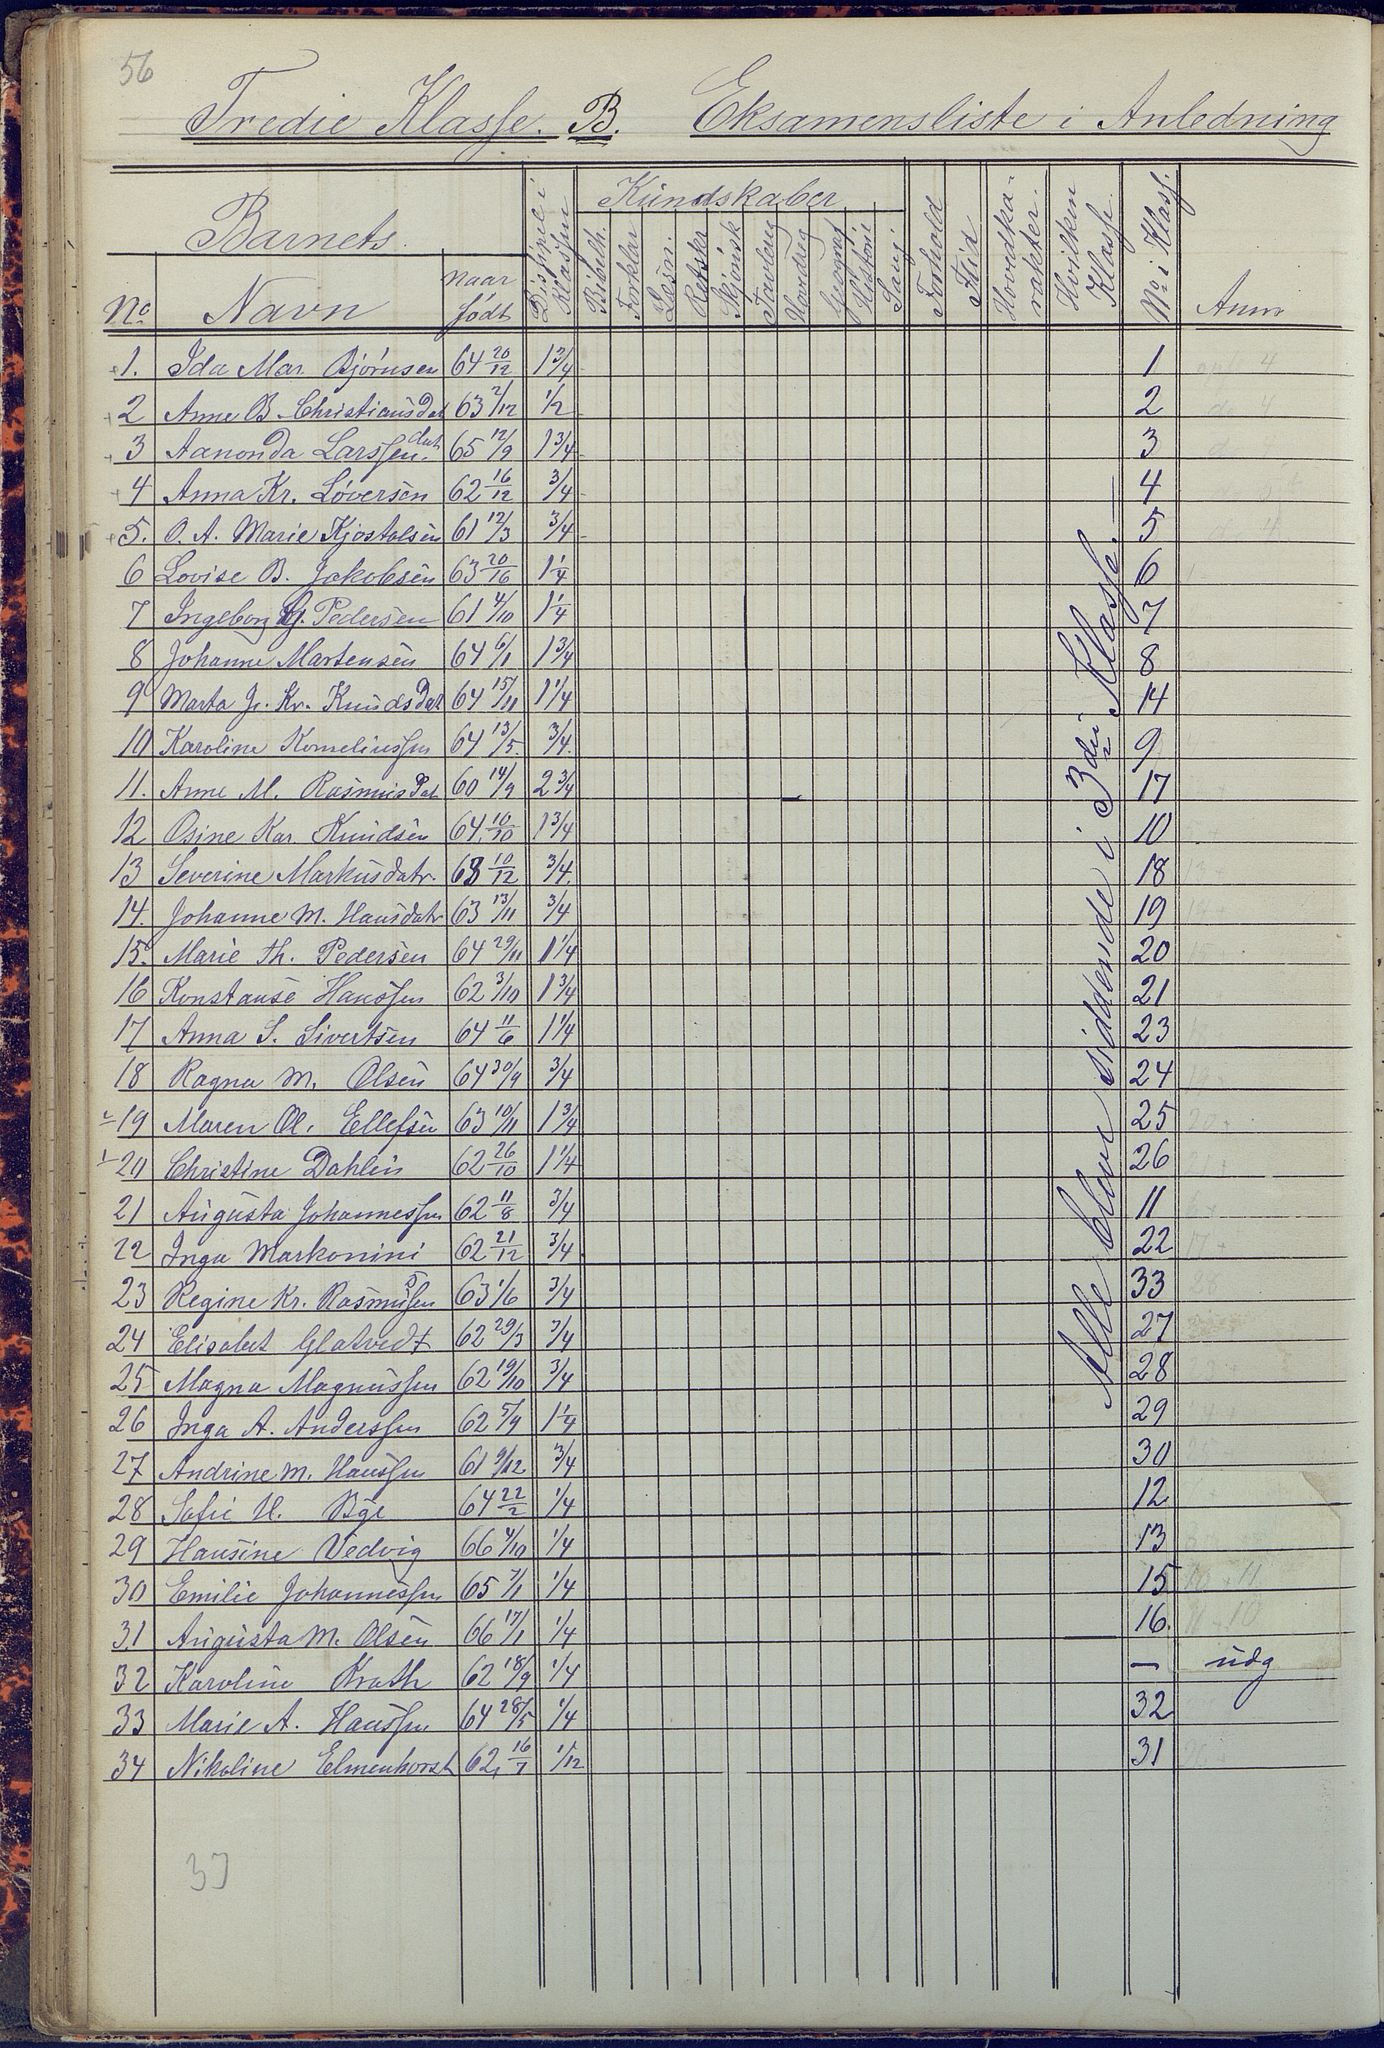 56
Tredie Klasse. B. Eksamensliste i Anledning
Barnets
Kundskaber
No Navn Naar født Discipel i Klassen Bibelh. Forklar Læsn. Retskr Skjønsk Tavlereg Hovdreg Geograf Historie Sang. Forhold Flid Hovedkarakter. Hvilken Klasse. No i Klass. Anm
1. Ida Mar. Bjørnsen 64 20/12 1 3/4 1
2 Anne B. Christiansdat 63 2/12 1/2 2
3 Aanonda Larssendat 65 12/9 1 3/4 3
4 Anna Kr. Løversen 62 16/12 3/4 4
5. O. A. Marie Kjostolsen 61 12/3 3/4 5
6 Lovise B. Jakobsen 63 20/16 1 1/4 6
7 Ingeborg Pedersen 61 4/10 1 1/4 7
8 Johanne Martensen 64 6/1 1 3/4 8
9 Marta J. Kr. KnudsDat 64 15/11 1 1/4 14
10 Karoline Korneliussen 64 13/5. 3/4. 9
11. Anne M. RasmusDat 60 14/9 2 3/4 17
12 Osine Kar. Knudsen 64. 10/10 1 3/4 10
13 Severine Markusdatr. 63 10/12 3/4. 18
14. Johanne M. Hansdatr 63 13/11 3/4 19
15. Marie Th. Pedersen 64 29/11 1 1/4 20
16 Konstanse Hanssen 62 3/10 1 3/4 21
17 Anna S. Sivertsen 64 11/6 1 1/4 23
18 Ragna M. Olsen 64 30/9 3/4 24
19 Maren Ol. Ellefsen 63 10/11 1 3/4 25
20 Christine Dahlin 62 26/10 1 1/4 26
21 Augusta Johannessen 62 11/8 3/4 11
22 Inga Markonini 62 21/12 3/4 22
23 Regine Kr. Rasmussen 63 1/6 3/4 33
24 Elisabet Glatvedt 62 29/3 3/4 27
25 Magna Magnussen 62 19/10 3/4 28
26 Inga A. Anderssen 62 5/9 1 1/4 29
27 Andrine M. Hanssen 61 9/12 3/4 30
28 Sofie H. Bge 64 22/2 1/4 12
29 Hansine Vedvig 66 4/10 1/4 13
30 Emilie Johannessen 65 7/1 1/4 15
31 Augusta M. Olsen 66 17/1 1/4 16.
32 Karoline Krath 62 18/9 1/4 — udg
33 Marie A. Hanssen 64 28/5 1/4 32
34 Nikoline Elmenhorst 62, 16/7 1/12 31
Alle Eleve siddende i 3die Klasse.
33